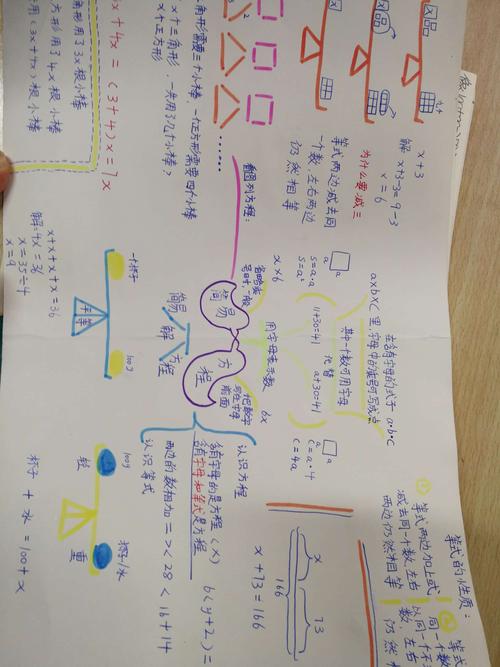 x+3
解 x+3-3=9-3
x=6
为什么要减三
等式两边减去同
一个数,左右两边
仍然相等
角形需要三十小棒,一个正方形需要四个小棒
x个三角形,一共用了几个小棒?
x个正方形
3x+4x=(3+4)x=7x
角形用了3x根小棒
方形用了4x根小棒
用(3x+4x)根小棒
看图列方程:
x+x+x+x=36
解:4x=36
x=35÷4
x=9
平等
一个杯子
100g
简易
方程
简易
解
方程
用字母表示数
省略乘
号时,一般
把数字
写在字母
前面
x×6
6x
a
a
s=a·a
s=a²
a
a
c=a·4
c=4a
11+30=41
代替
a+30=41
其中一个数可用字母
在含有字母的式子
a×b×c里,字母中的乘号可写成点
a·b·c
认识方程
含有字母的是方程(x)
含有字母和等式是方程
6(y+2)=
认识等式
两边的数相加=><28<16+14
轻
100g
杯子/水
重
杯子+水=100+x
x
73
166
x+73=166
等式的性质:
① 等式两边加上或
减去同一个数,左右
两边仍然相等
②
同一个数
以同一个不
数,左右
仍然相